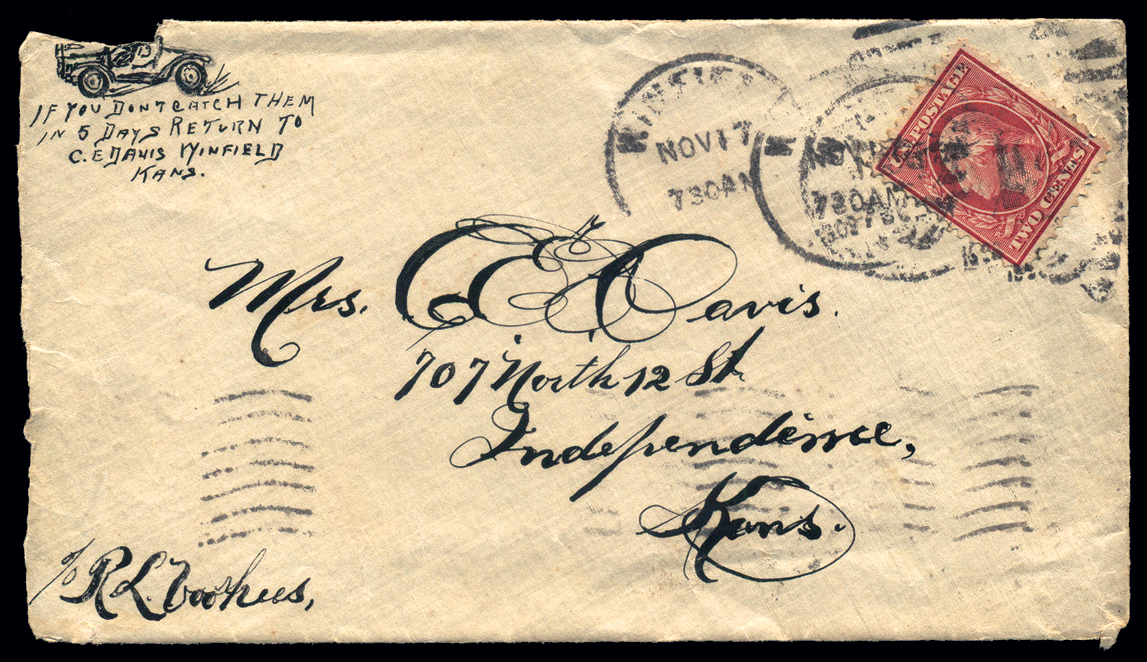 13
IF YOU DONT CATCH THEM
IN 5 DAYS RETURN TO
C. E DAVIS WINFIELD
KANS.
NOV 17
730 AM
730 AM
U.S. POSTAGE
TWO CENTS
Mrs. C. E. Davis.
707 North 12 St.
Independence,
Kans.
c/o R. L. Voorhees,